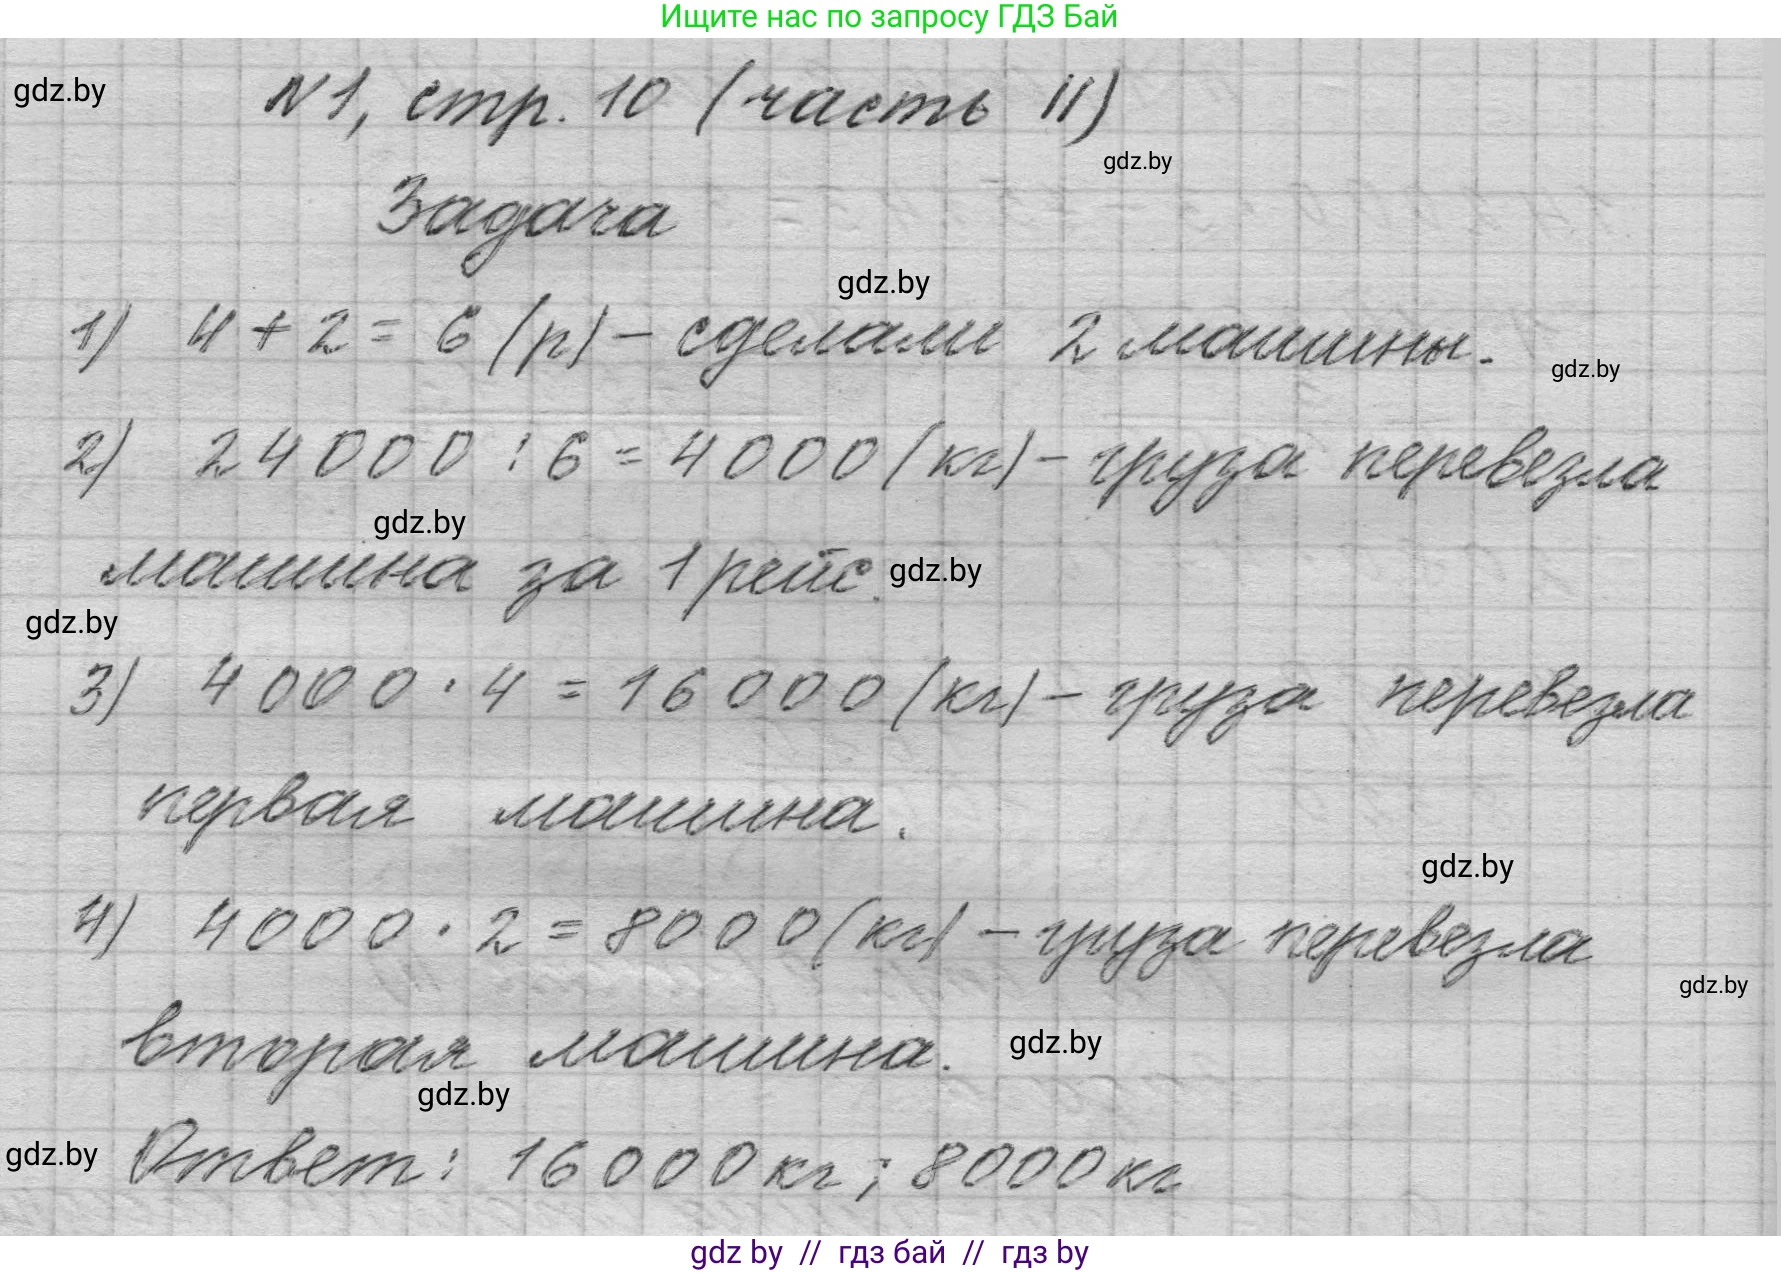 Ищите нас по запросу ГДЗ Бай
gdz.by
№1, стр. 10 (часть II)
gdz.by
Задача
gdz.by
1) 4 + 2 = 6 (р) – сделали 2 машины.
gdz.by
2) 24000 : 6 = 4000 (кг) – груза перевезла
gdz.by
машина за 1 рейс.
gdz.by
gdz.by
3) 4000 · 4 = 16000 (кг) – груза перевезла
первая машина.
gdz.by
4) 4000 · 2 = 8000 (кг) – груза перевезла
gdz.by
вторая машина.
gdz.by
gdz.by
gdz.by
Ответ: 16000 кг; 8000 кг
gdz by // гдз бай // гдз by